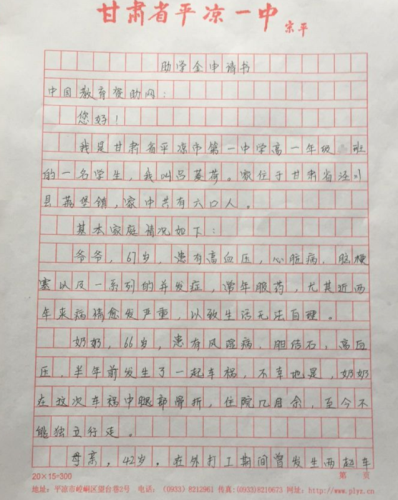 甘肃省平凉一中
宗平
助学金申请书
中国教育资助网：
您好！
我是甘肃省平凉市第一中学高一年级 班
的一名学生，我叫吕 。家位于甘肃省泾川
县荔堡镇，家中共有六口人。
基本家庭情况如下：
爷爷，67岁，患有高血压，心脏病，脑梗
塞以及一系列的并发症，常年服药，尤其近两
年来病情愈发严重，以致生活无法自理。
奶奶，66岁，患有风湿病，胆结石，高血
压，半年前发生了一起车祸，不幸的是，奶奶
在这次车祸中腿部骨折，住院几月余，至今不
能独立行走。
母亲，42岁，在外打工期间曾发生两起车
20×15=300
第 页
地址：平凉市崆峒区望台巷2号 电话：(0933) 8212961 传真：(0933)8219673 网址：http://www.plyz.cn